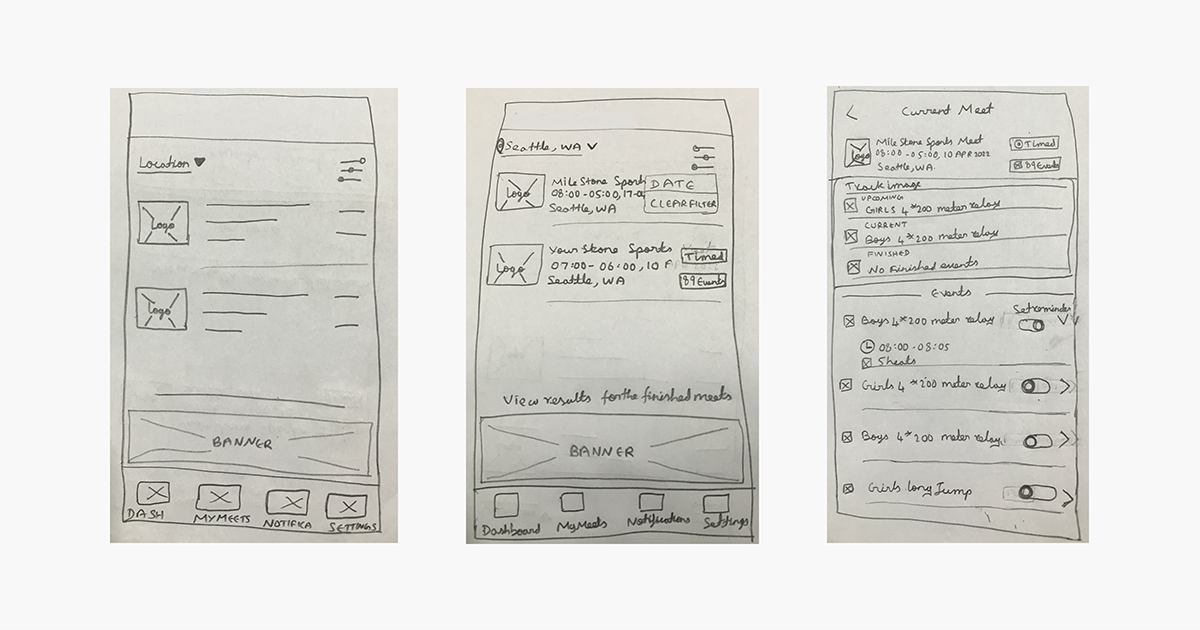 Location
Logo
Logo
BANNER
DASH MYMEETS NOTIFICA SETTINGS
Seattle, WA
DATE
CLEAR FILTER
Logo
Mile Stone Sport
08:00-05:00, 17-a
Seattle, WA
Logo
Your Stone Sports
07:00-06:00, 10
Seattle, WA
Timed
89 Events
View results for the finished meets
BANNER
Dashboard MyMeets Notifications Settings
Current Meet
Logo
Mile Stone Sports Meet
08:00-05:00, 10 APR 2022
Seattle, WA.
Timed
89 Events
Track image
UPCOMING
GIRLS 4*200 meter relay
CURRENT
Boys 4*200 meter relay
FINISHED
No Finished events
Events
Set reminder
Boys 4*200 meter relay
08:00-08:05
5 heats
Girls 4*200 meter relay
Boys 4*200 meter relay
Girls long Jump